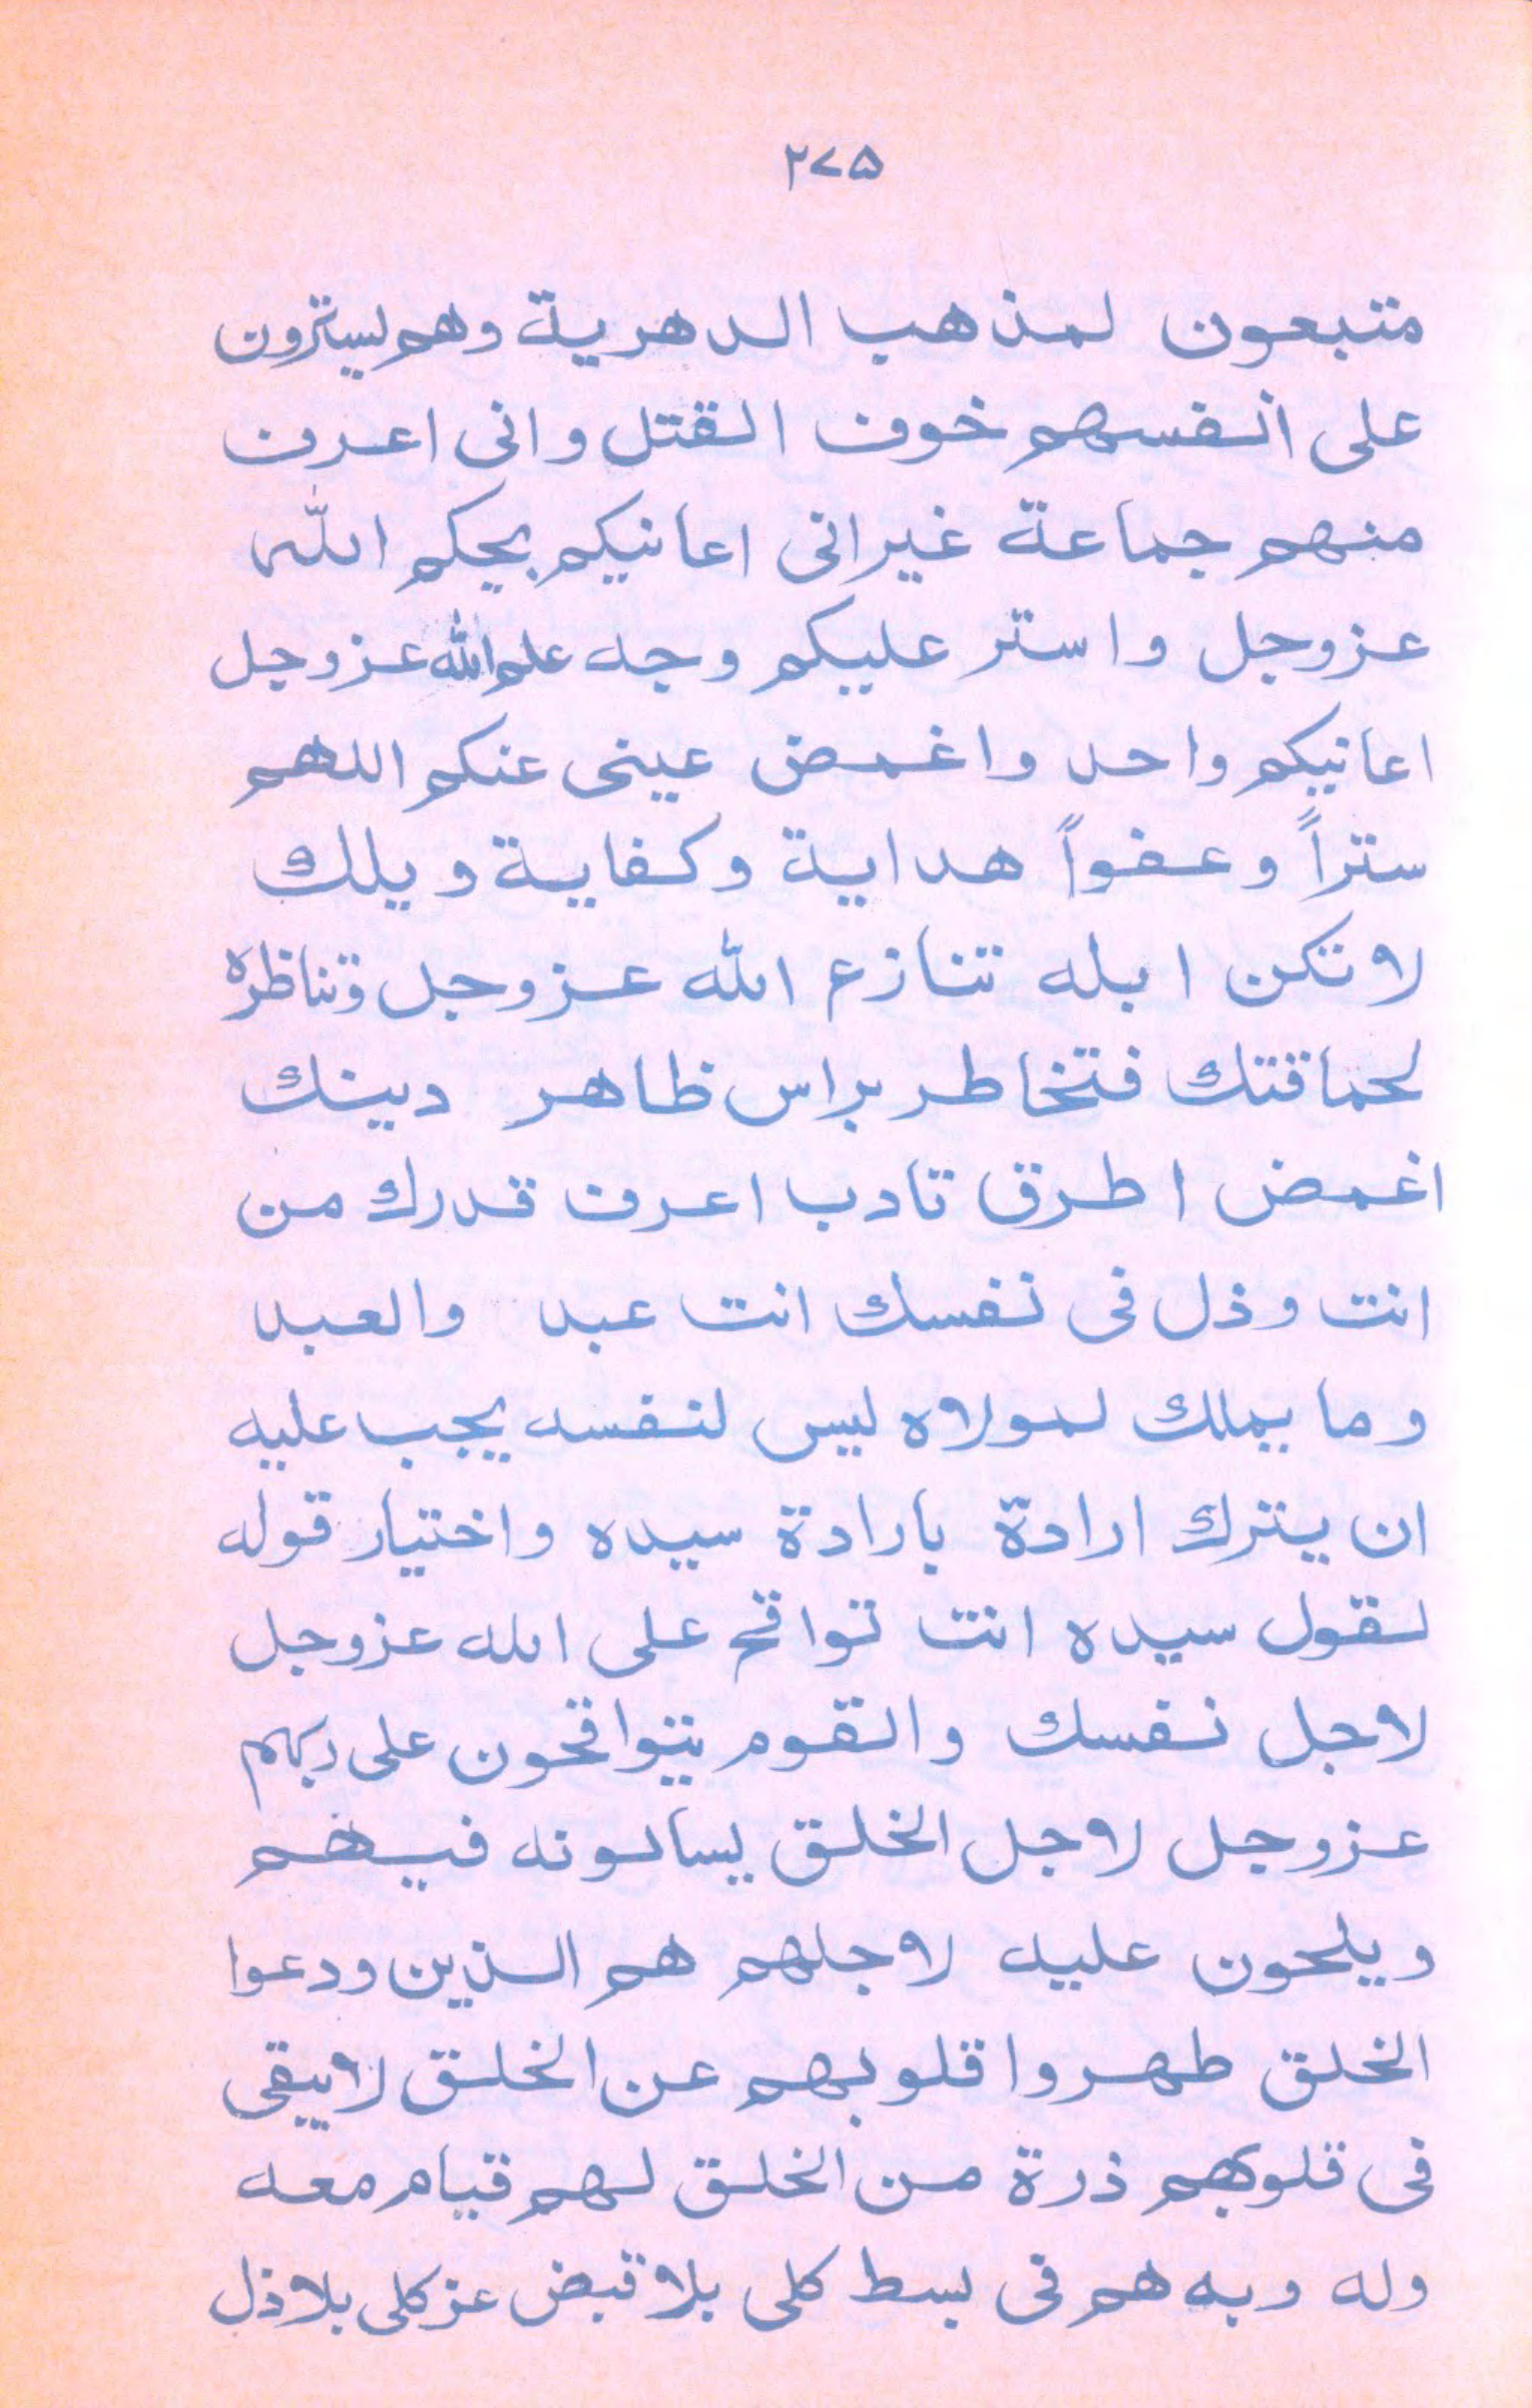 ٢٧٥
متبعون لمذهب الدهرية وهم يسترون
على انفسهم خوف القتل وانى اعرف
منهم جماعة غير انى اعانيكم بحكم الله
عزوجل واستر عليكم وجه علم الله عزوجل
اعانيكم واحد واغمض عينى عنكم اللهم
ستراً وعفواً هداية وكفاية ويلك
لا تكن ابله تنازع الله عزوجل وتناظره
لحماقتك فتخاطر براس ظاهر دينك
اغمض اطرق تادب اعرف قدرك من
انت وذل فى نفسك انت عبد والعبد
وما يملك لمولاه ليس لنفسه يجب عليه
ان يترك ارادة بارادة سيده واختيار قوله
لقول سيده انت تواقح على الله عزوجل
لاجل نفسك والقوم يتواقحون على ربهم
عزوجل لاجل الخلق يسالونه فيهم
ويلحون عليه لاجلهم هم الذين ودعوا
الخلق طهروا قلوبهم عن الخلق لا يبقى
فى قلوبهم ذرة من الخلق لهم قيام معه
وله وبه هم فى بسط كلى بلا قبض عز كلى بلا ذل